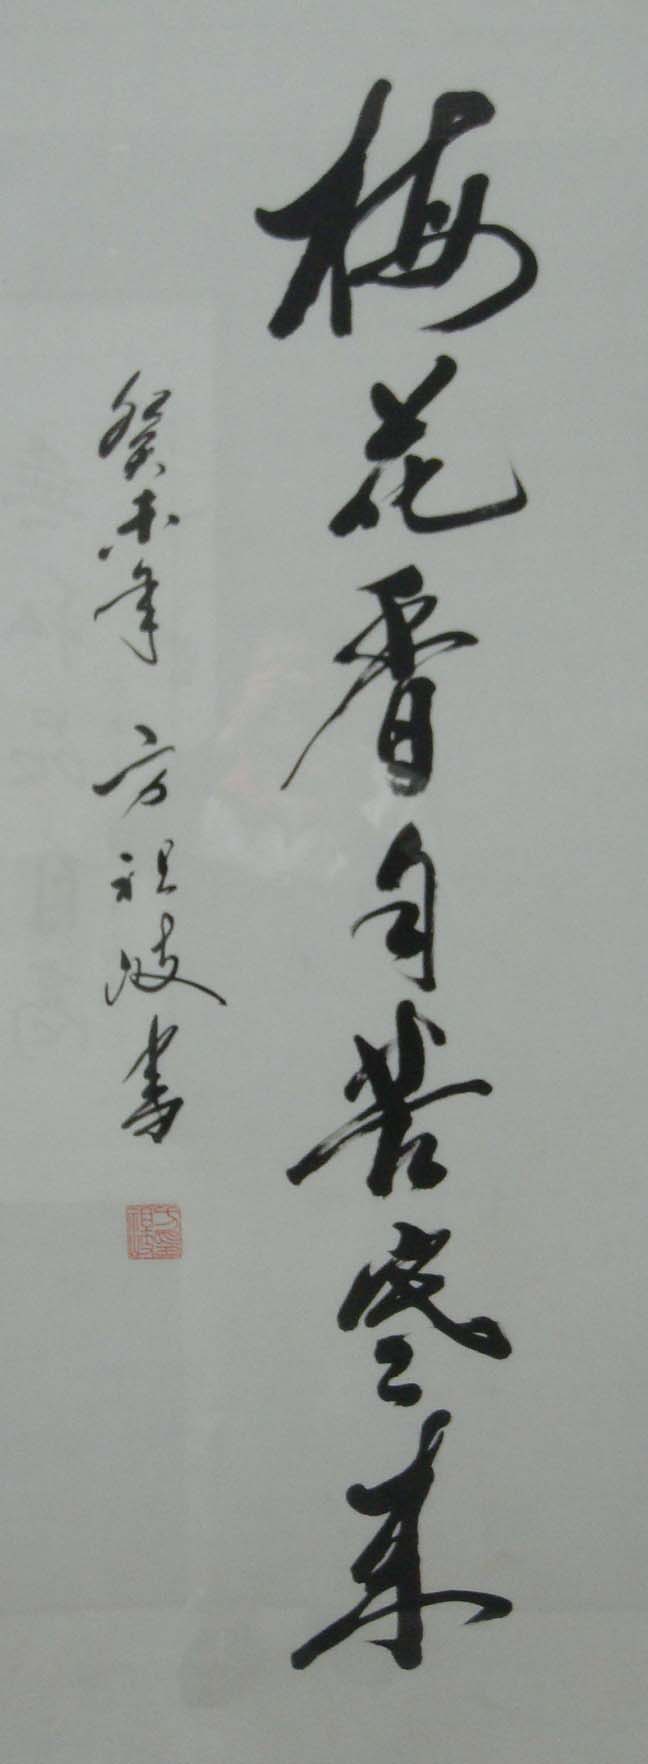 梅花香自苦寒来
癸未年 方祖岐书